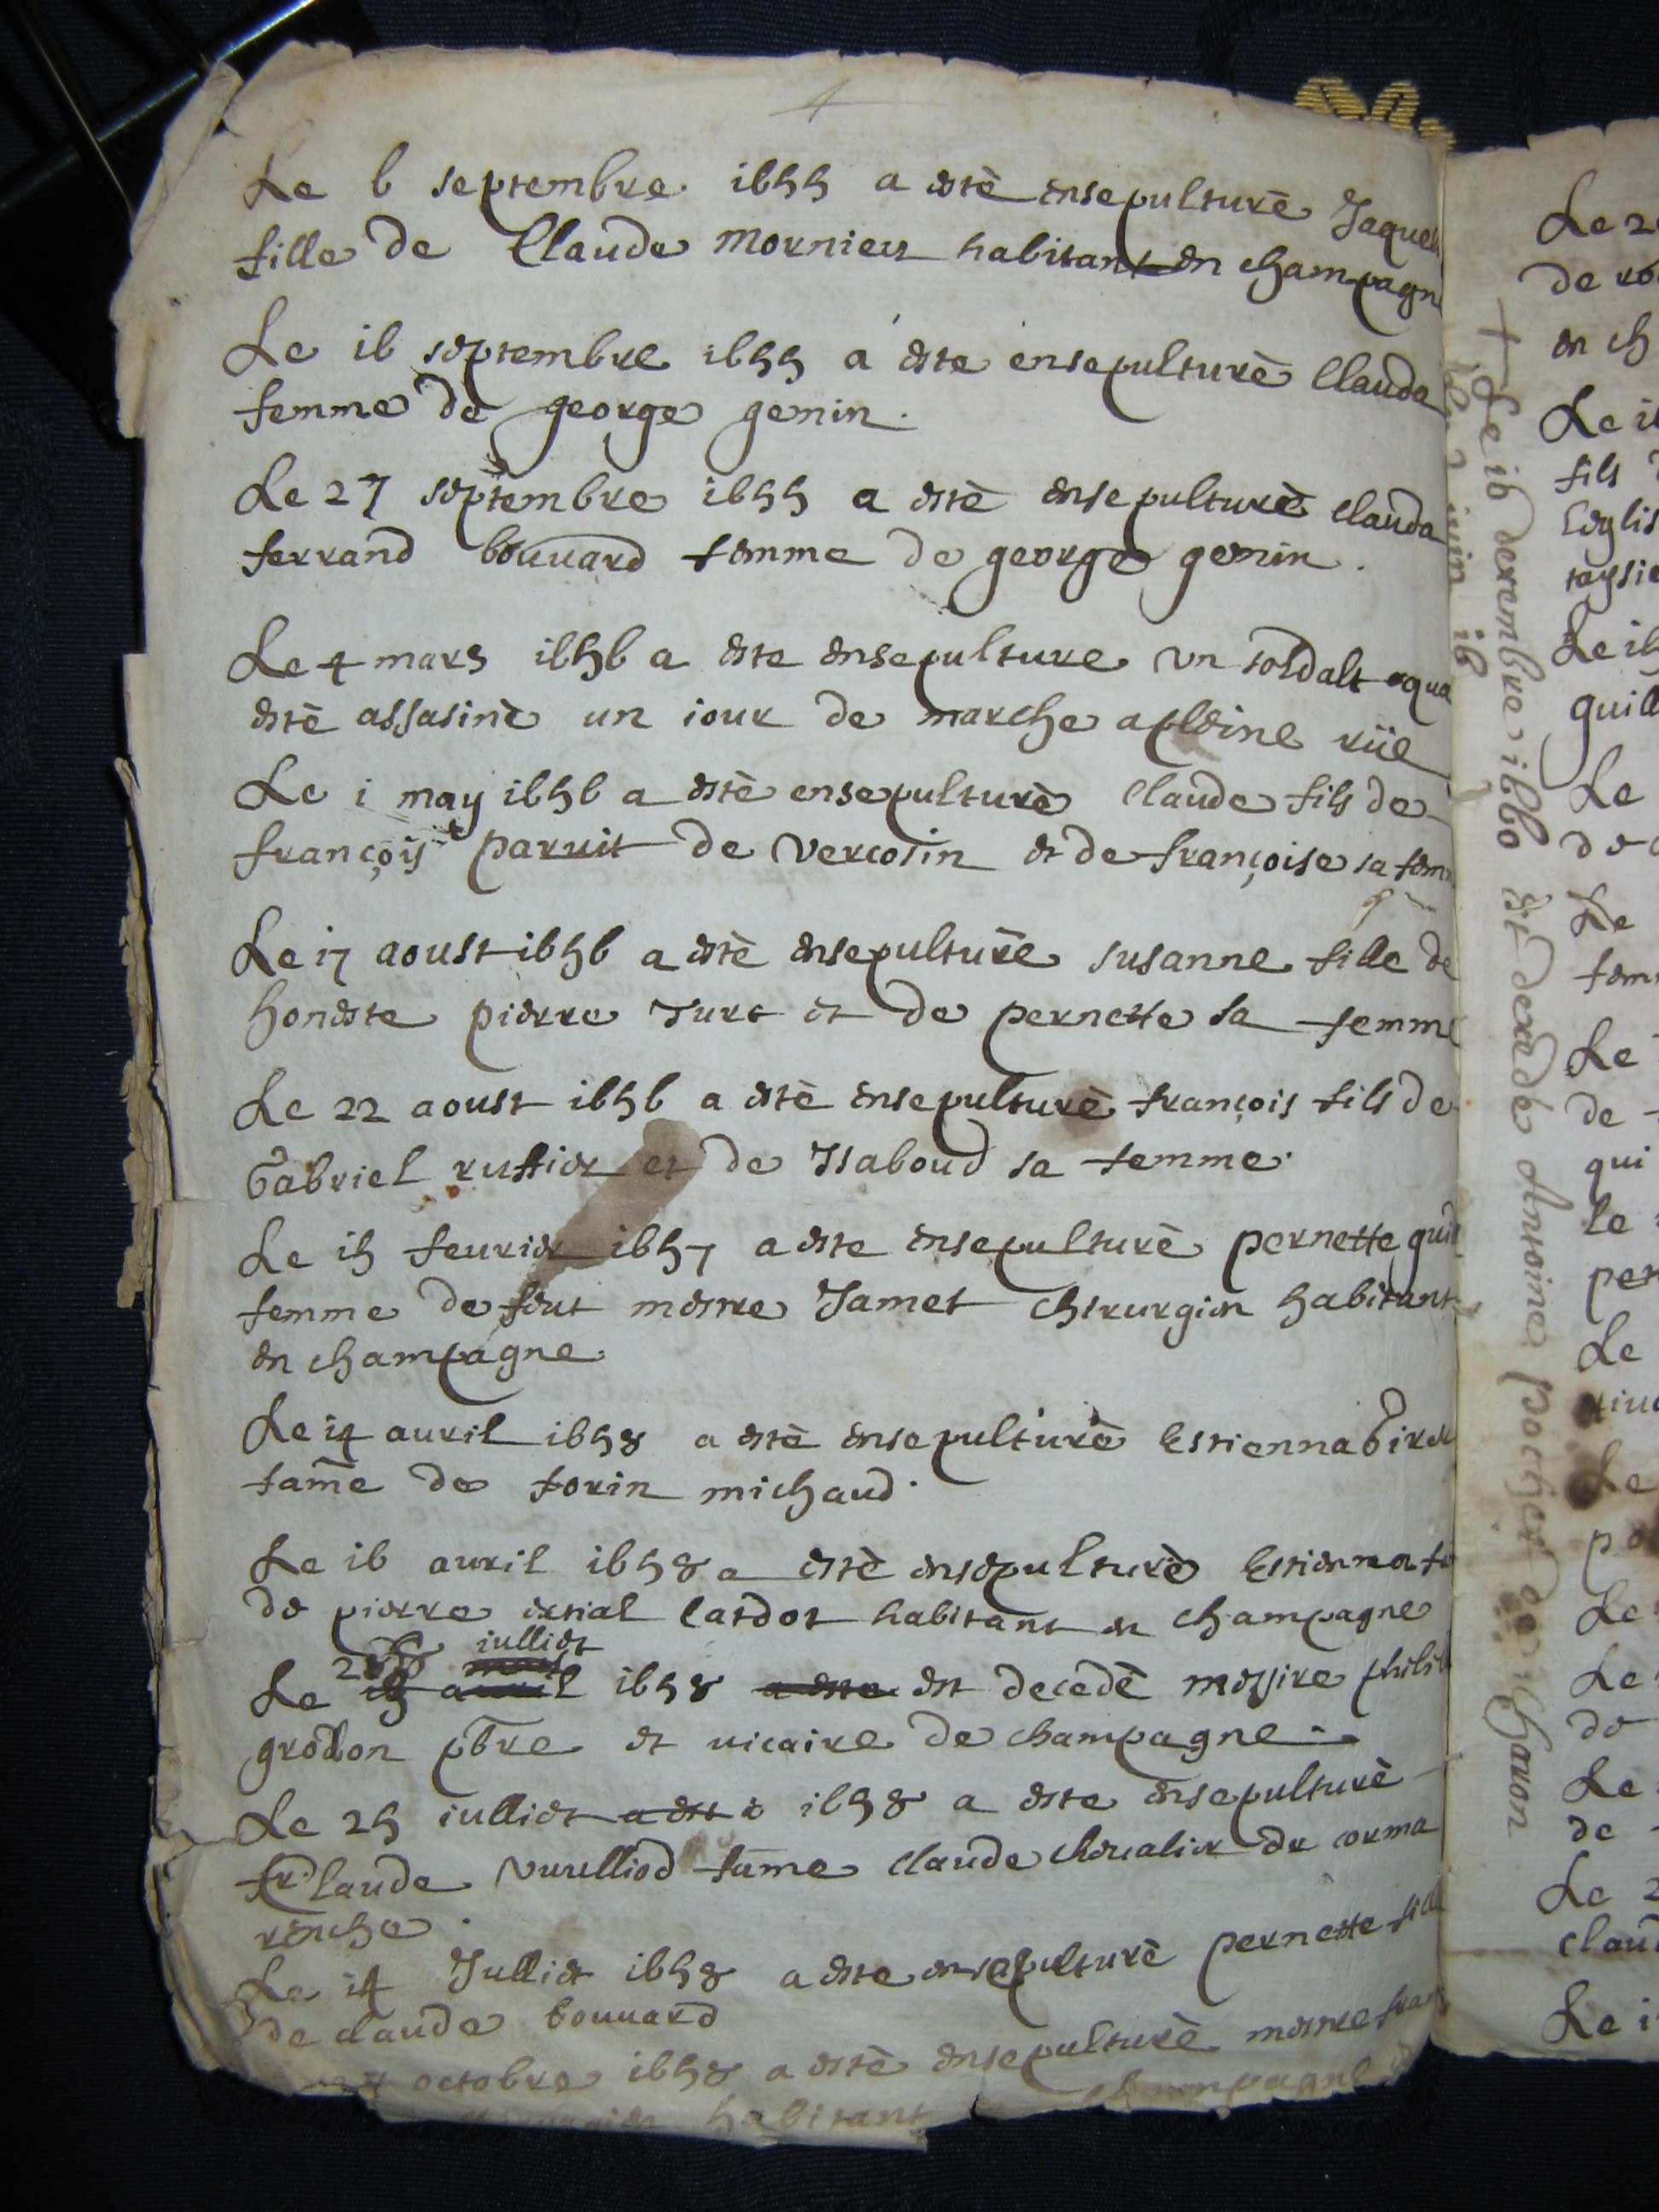 Le 6 septembre 1655 a estè ensepulturè Jaque
fille de Claude Mornieu habitant en champagn
Le 16 septembre 1655 a este ensepulturè Clauda
femme de george genin.
Le 27 septembre 1655 a estè ensepulturè clauda
ferrand bouuard femme de george genin.
Le 4 mars 1656 a este ensepulture vn soldalt qua
estè assasinè un iour de marche a pleine rüe
Le 1 may 1656 a estè ensepulturè Claude fils de
françois de Vercosin et de françoise sa fem
Le 17 aoust 1656 a estè ensepulturè susanne fille de
honeste pierre Turc et de pernette sa femme
Le 22 aoust 1656 a estè ensepulturè françois fils de
Gabriel rustier et de Isaboud sa femme.
Le 15 feurier 1657 a este ensepulturè pernette
femme de feut mestre Jamet chirurgien habitant
en champagne
Le 14 auril 1658 a estè ensepulturè Estienna
fame de forin michaud.
Le 16 auril 1658 a estè ensepulturè
de pierre cardot habitant en champagne
iulliet
Le 1658 est decedè messire
grodon pbre et uicaire de champagne
Le 25 iulliet 1658 a este ensepulturè
Claude Vuulliod fame claude cheualier de corma
renche.
Le 14 Julliet 1658 a este ensepulturè pernette fille
de claude bouuard
octobre 1658 a estè ensepulturè mestre
habitant champagne
+ Le 10 decembre 1660 est decede Antoine pochet de charon
juin 16
Le 2
de
en ch
Le
fils
Leglis
Le 15
guill
Le
de
Le
fem
Le
de
qui
le
per
Le
Le
Le
Le
de
Le
de
Le 2
claud
Le 1